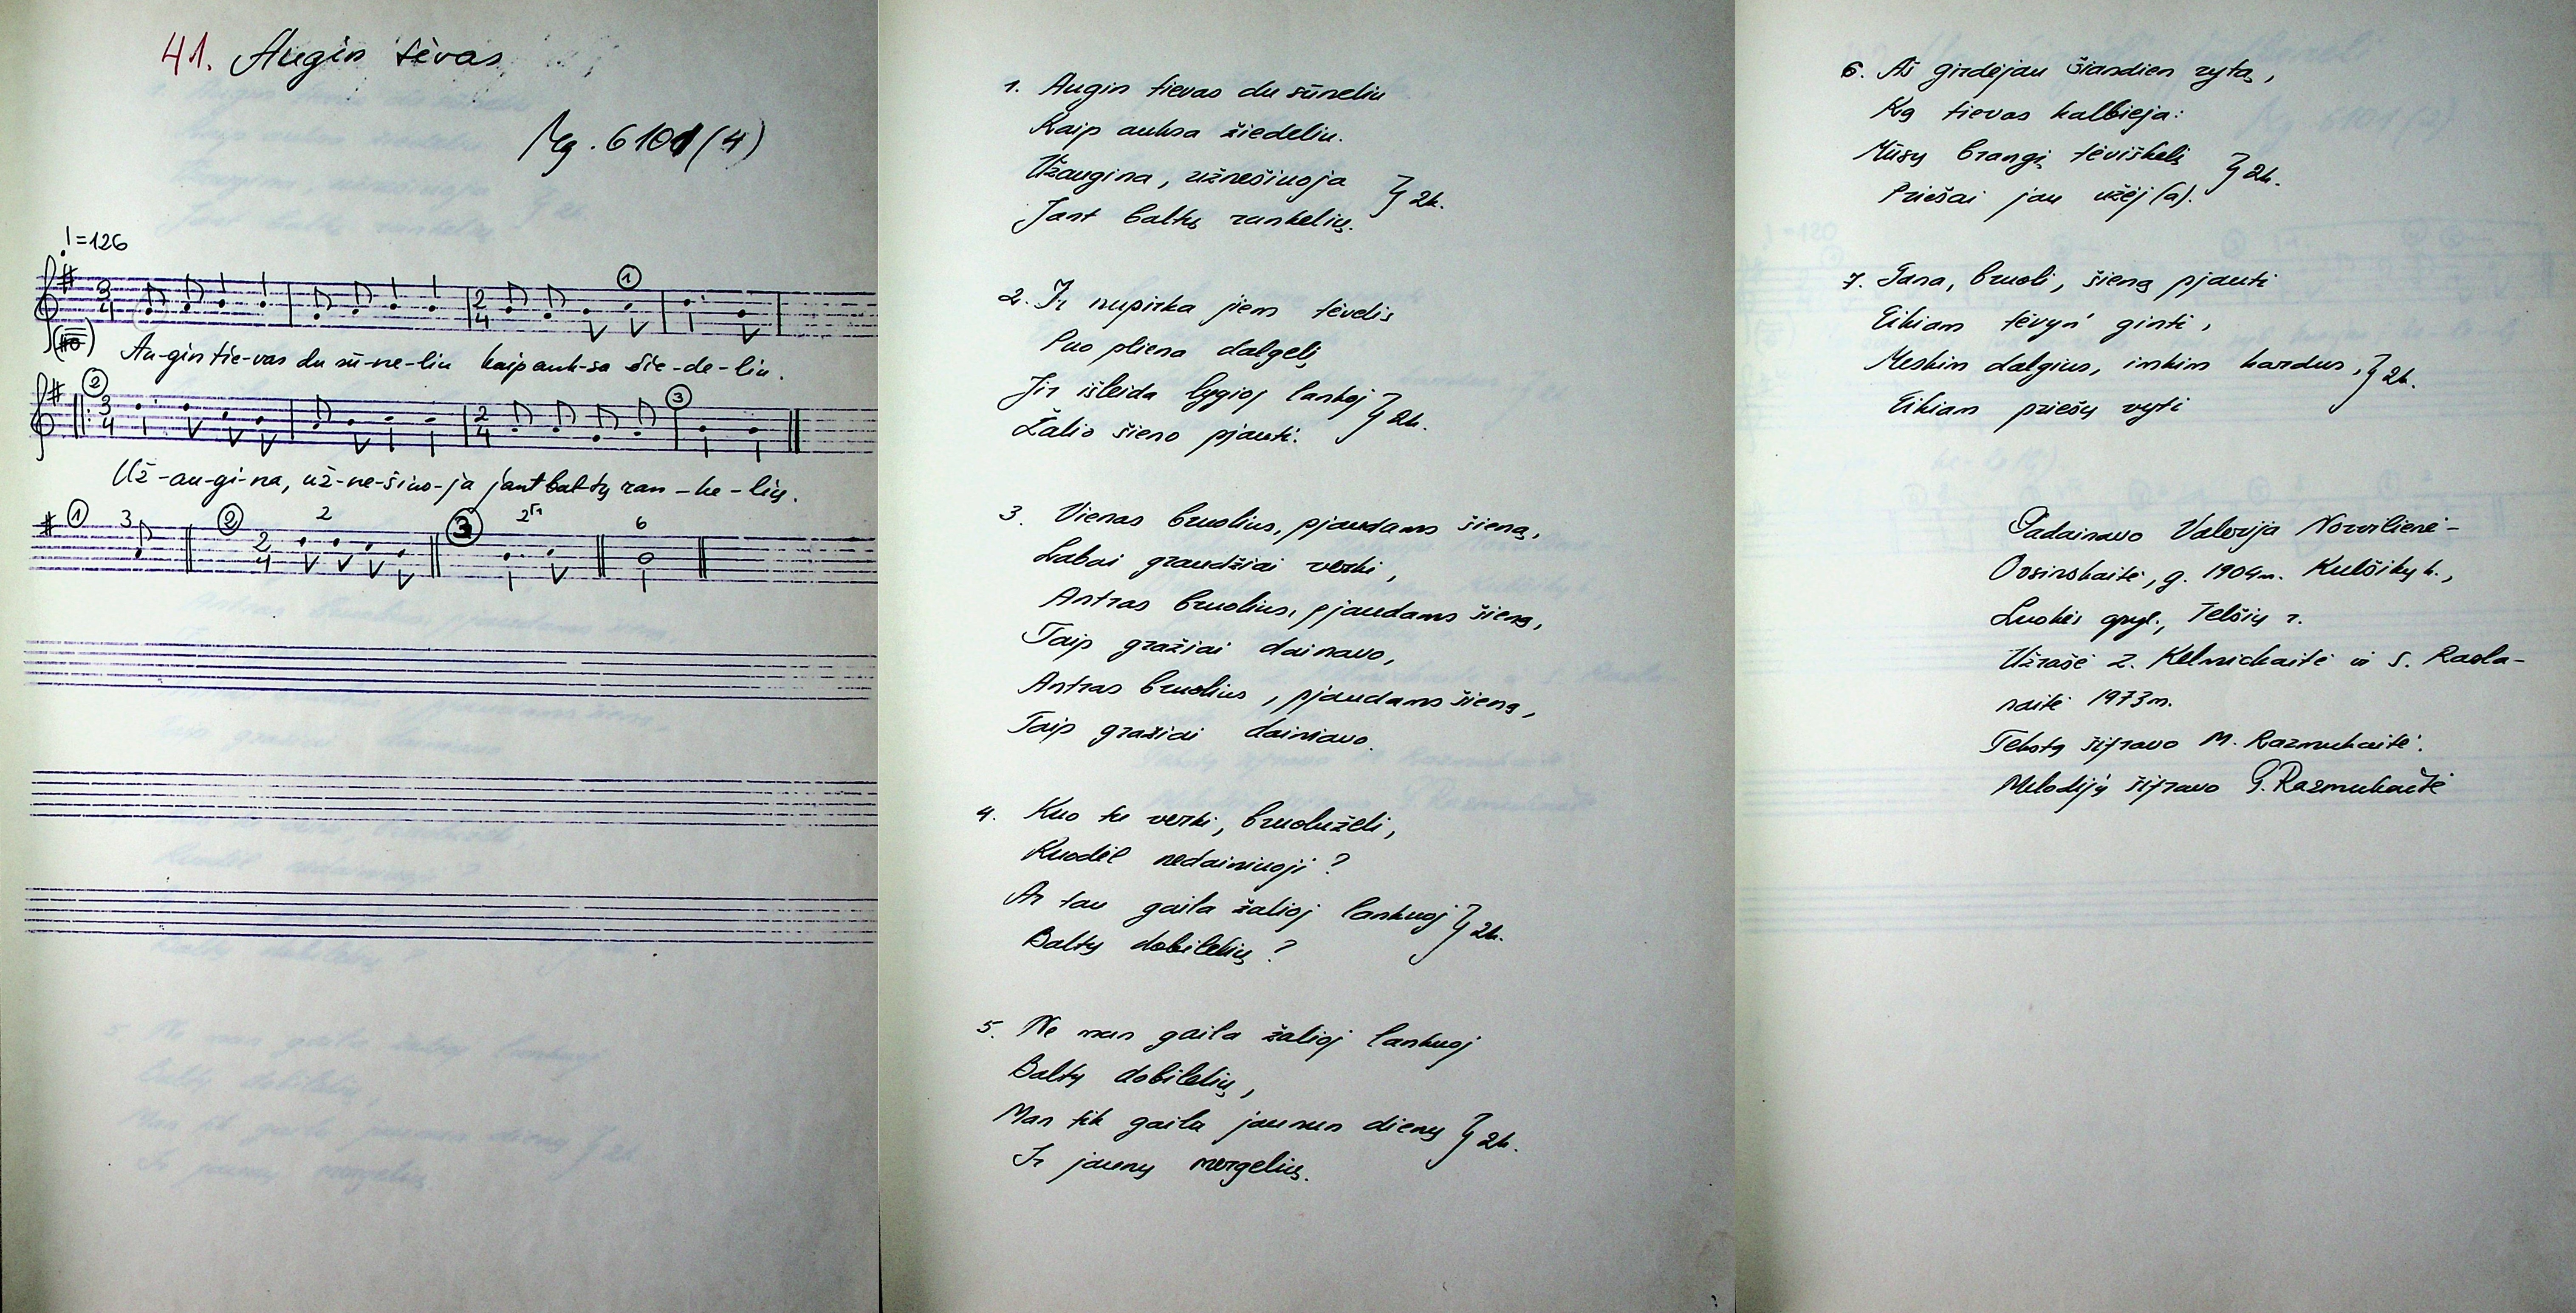 41. Augin tėvas
Mg. 6101 (4)
♩=126
3/4 2/4 1
Au-gin tie-vas du sū-ne-liu kaip auk-sa žie-de-liu.
2 3/4 2/4 3
Už-au-gi-na, už-ne-šiuo-ja jant bal-tų ran-ke-lių.
1 3 2 2/4 2 3 2 6
1. Augin tievas du sūneliu
Kaip auksa žiedeliu.
Užaugina, užnešiuoja } 2k.
Jant baltų rankelių.
2. Ir nupirka jiem tėvelis
Puo pliena dalgelį
Jir išleida lygioj lankoj } 2k.
Žalio šieno pjauti.
3. Vienas bruolius, pjaudams šieną,
Labai graudžiai verki,
Antras bruolius, pjaudams šieną,
Taip gražiai dainavo,
Antras bruolius, pjaudams šieną,
Taip gražiai dainiavo.
4. Kuo tu verki, bruoluželi,
Kuodėl nedainiuoji?
Ar tau gaila žalioj lankuoj } 2k.
Baltų dobilelių?
5. Ne man gaila žalioj lankuoj
Baltų dobilelių,
Man tik gaila jaunun dienų } 2k.
Ir jaunų mergelių.
6. Aš girdėjau šiandien rytą,
Ką tievas kalbieja:
Mūsų brangį tėviškelį } 2k.
Priešai jau užėj(a).
7. Gana, bruoli, šieną pjauti
Eikiam tėvyn' ginti,
Meskim dalgius, imkim kardus, } 2k.
Eikiam priešų vyti
Padainavo Valerija Norvilienė-
g. 1904m. Kulšikų k.,
Luokės apyl., Telšių r.
Užrašė Z. Kelmickaitė ir S. Rasla-
naitė 1973m.
Tekstą šifravo M. Razmukaitė.
Melodiją šifravo G. Razmukaitė